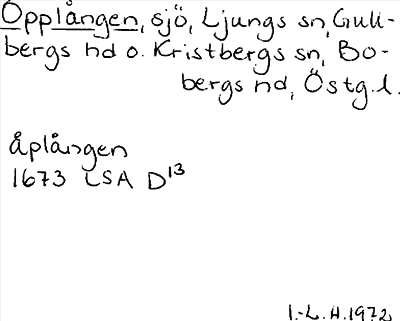 Opplången, sjö, Ljungs sn, Gull-
bergs hd o. Kristbergs sn, Bo-
bergs hd, Östg.l.
åplången
1673 LSA D¹³
I.-L. H. 1972